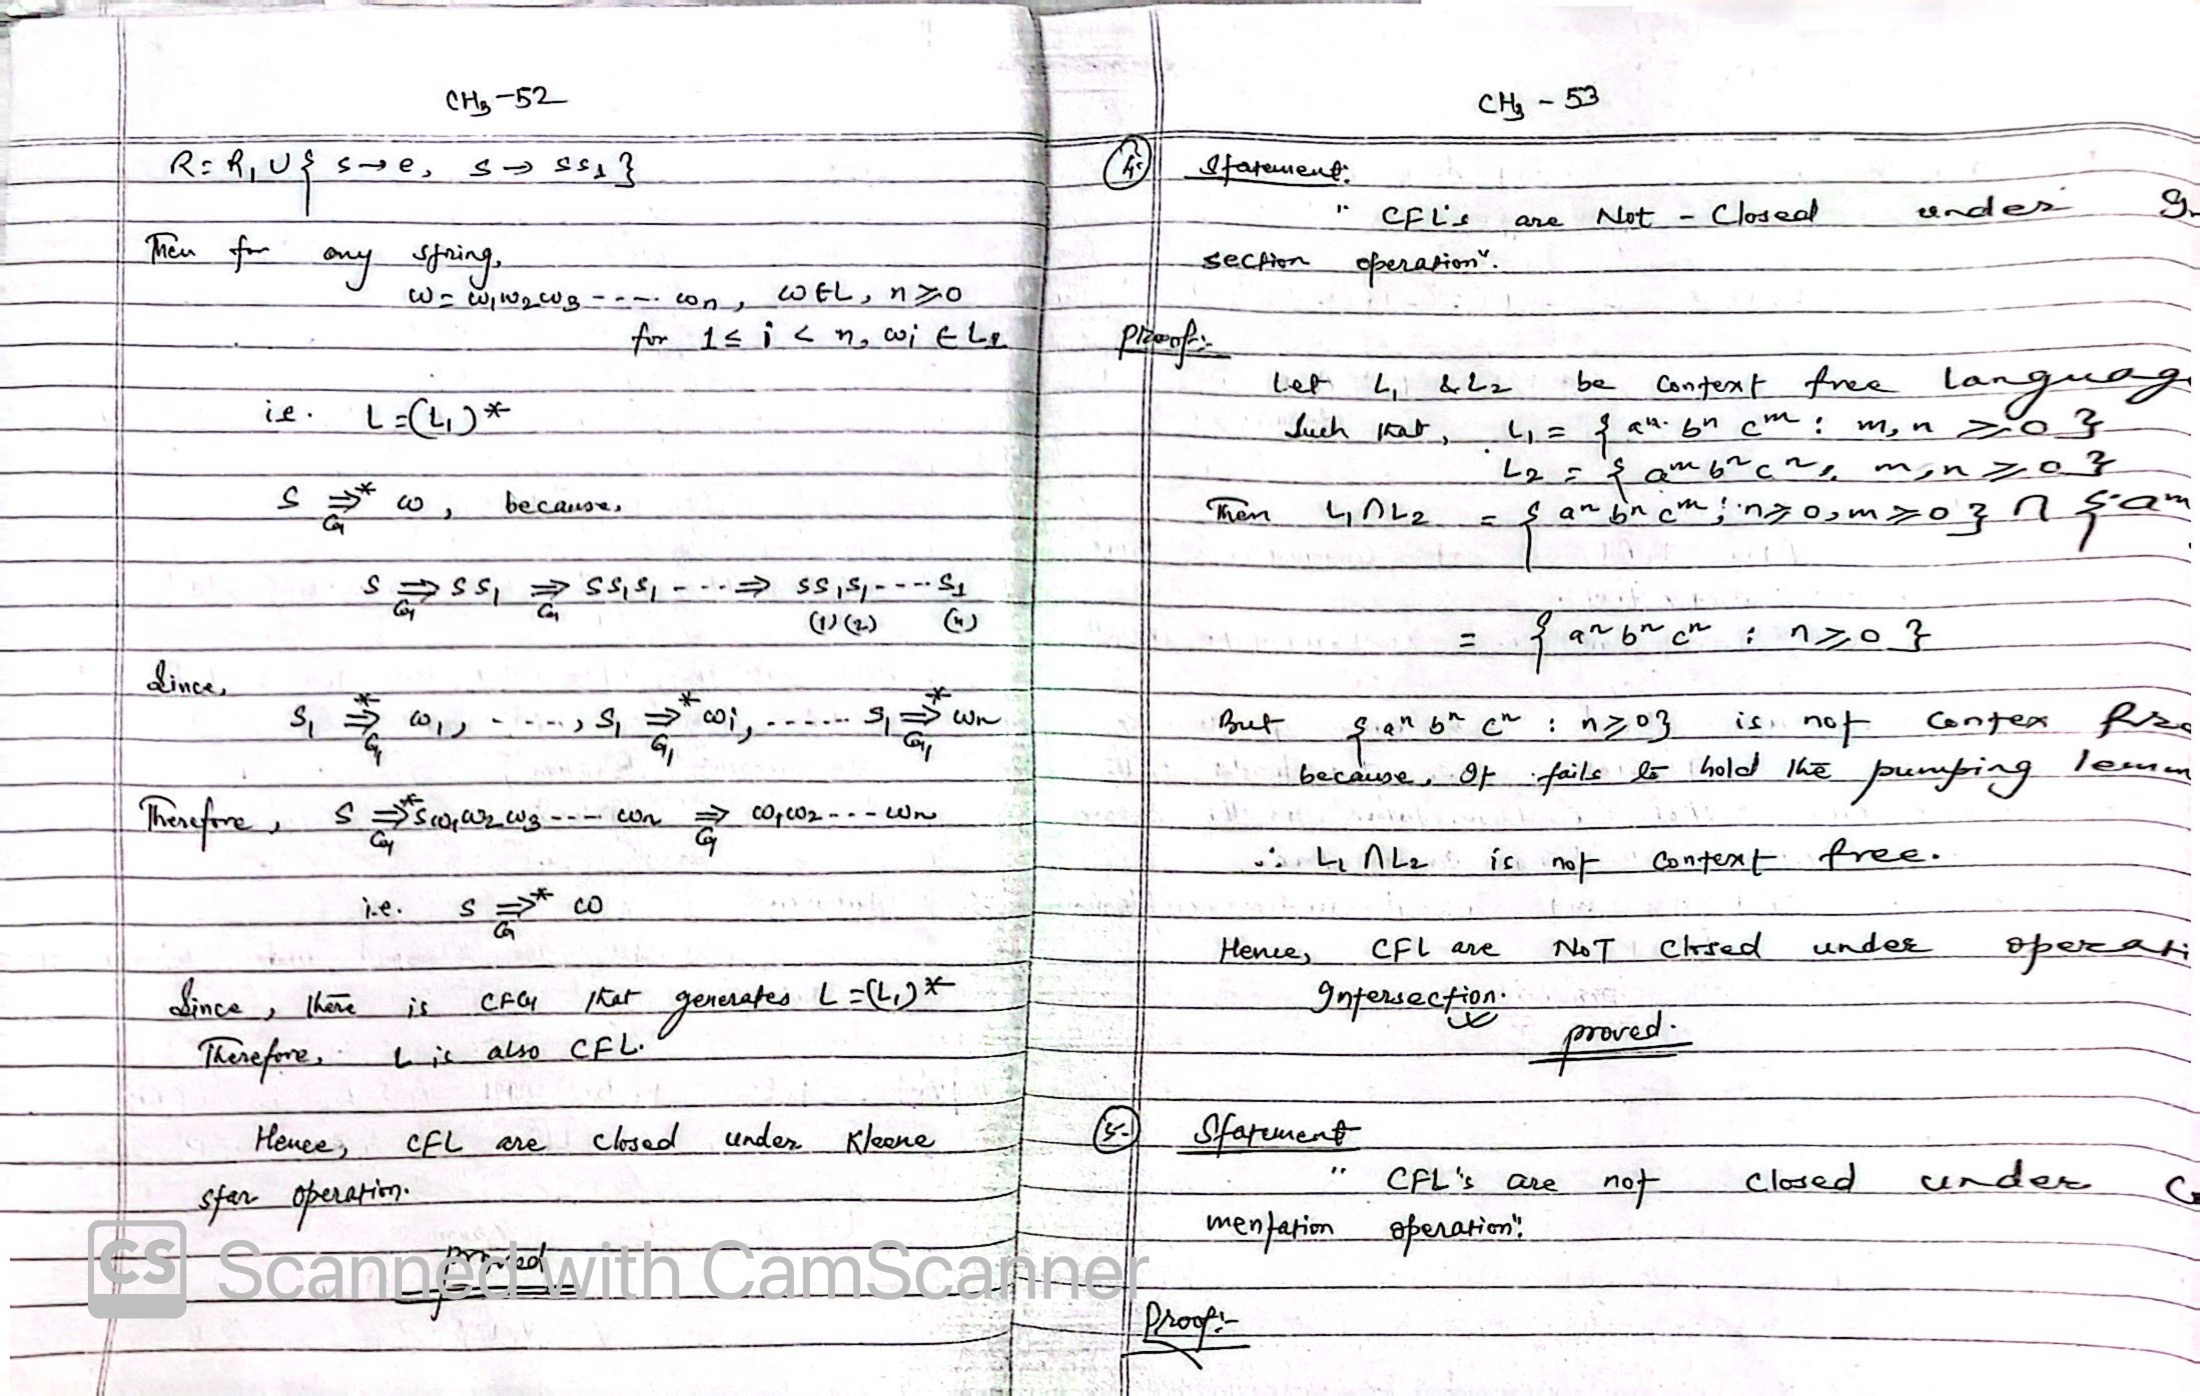 CH3-52
R = R₁ ∪ { S → e, S → SS₁ }
Then for any string,
w = w₁w₂w₃ ---- wₙ, w ∈ L, n ≥ 0
for 1 ≤ i < n, wi ∈ L₁
i.e. L = (L₁)*
S ⇒* w, because,
G
S ⇒ SS₁ ⇒ SS₁S₁ ---- ⇒ SS₁S₁ ---- S₁
G G (1) (2) (n)
Since,
S₁ ⇒* w₁, ----, S₁ ⇒* wi, ----- S₁ ⇒* wn
G₁ G₁ G₁
Therefore, S ⇒* Sw₁w₂w₃ --- wn ⇒ w₁w₂ --- wn
G G
i.e. S ⇒* w
G
Since, there is CFG that generates L = (L₁)*
Therefore, L is also CFL.
Hence, CFL are closed under Kleene
star operation.
proved
CS Scanned with CamScanner
CH3 - 53
4. Statement:
" CFL's are Not - Closed under In
section operation".
Proof:-
Let L₁ & L₂ be context free languag
Such that, L₁ = { aⁿ bⁿ cᵐ : m, n ≥ 0 }
L₂ = { aᵐ bⁿ cⁿ, m, n ≥ 0 }
Then L₁ ∩ L₂ = { aⁿ bⁿ cᵐ ; n ≥ 0, m ≥ 0 } ∩ { aᵐ
= { aⁿ bⁿ cⁿ : n ≥ 0 }
But { aⁿ bⁿ cⁿ : n ≥ 0 } is not contex free
because, It fails to hold the pumping lemm
∴ L₁ ∩ L₂ is not context free.
Hence, CFL are NOT Closed under operati
Intersection.
proved.
5. Statement
" CFL's are not closed under Co
mentation operation".
Proof:-